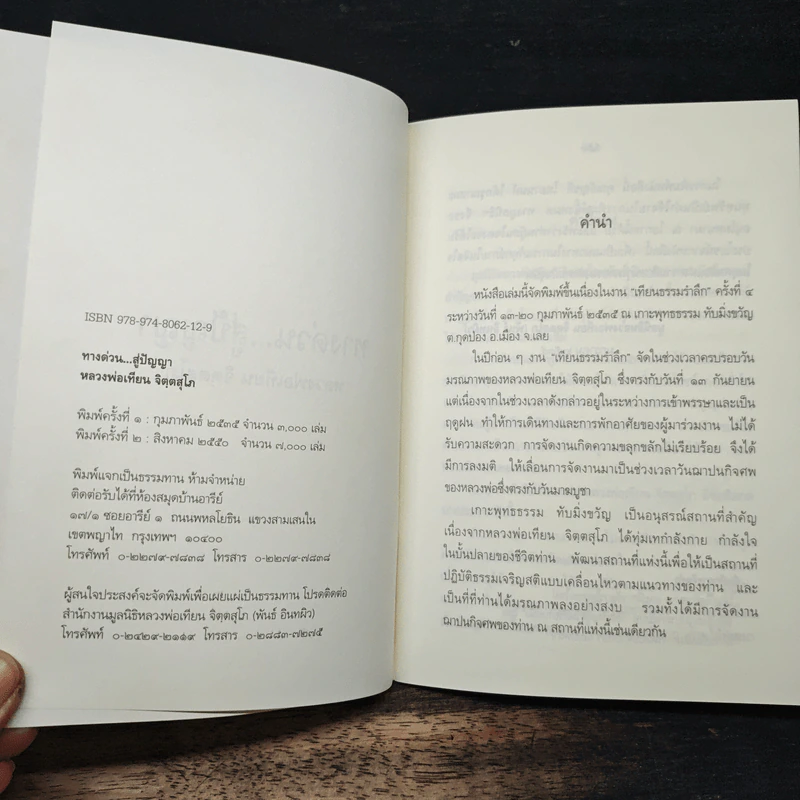 ISBN 978-974-8062-12-9
ทางด่วน...สู่ปัญญา
หลวงพ่อเทียน จิตฺตสุโภ
พิมพ์ครั้งที่ ๑ : กุมภาพันธ์ ๒๕๓๕ จำนวน ๓,๐๐๐ เล่ม
พิมพ์ครั้งที่ ๒ : สิงหาคม ๒๕๕๐ จำนวน ๗,๐๐๐ เล่ม
พิมพ์แจกเป็นธรรมทาน ห้ามจำหน่าย
ติดต่อรับได้ที่ห้องสมุดบ้านอารีย์
๑๗/๑ ซอยอารีย์ ๑ ถนนพหลโยธิน แขวงสามเสนใน
เขตพญาไท กรุงเทพฯ ๑๐๔๐๐
โทรศัพท์ ๐-๒๒๗๙-๗๘๓๘ โทรสาร ๐-๒๒๗๙-๗๘๓๘
ผู้สนใจประสงค์จะจัดพิมพ์เพื่อเผยแผ่เป็นธรรมทาน โปรดติดต่อ
สำนักงานมูลนิธิหลวงพ่อเทียน จิตฺตสุโภ (พันธ์ อินทผิว)
โทรศัพท์ ๐-๒๔๒๙-๒๑๑๙ โทรสาร ๐-๒๘๘๓-๗๒๗๕
คำนำ
หนังสือเล่มนี้จัดพิมพ์ขึ้นเนื่องในงาน "เทียนธรรมรำลึก" ครั้งที่ ๔
ระหว่างวันที่ ๑๓-๒๐ กุมภาพันธ์ ๒๕๓๕ ณ เกาะพุทธธรรม ทับมิ่งขวัญ
ต.กุดป่อง อ.เมือง จ.เลย
ในปีก่อน ๆ งาน "เทียนธรรมรำลึก" จัดในช่วงเวลาครบรอบวัน
มรณภาพของหลวงพ่อเทียน จิตฺตสุโภ ซึ่งตรงกับวันที่ ๑๓ กันยายน
แต่เนื่องจากในช่วงเวลาดังกล่าวอยู่ในระหว่างการเข้าพรรษาและเป็น
ฤดูฝน ทำให้การเดินทางและการพักอาศัยของผู้มาร่วมงาน ไม่ได้
รับความสะดวก การจัดงานเกิดความขลุกขลักไม่เรียบร้อย จึงได้
มีการลงมติ ให้เลื่อนการจัดงานมาเป็นช่วงเวลาวันฌาปนกิจศพ
ของหลวงพ่อซึ่งตรงกับวันมาฆบูชา
เกาะพุทธธรรม ทับมิ่งขวัญ เป็นอนุสรณ์สถานที่สำคัญ
เนื่องจากหลวงพ่อเทียน จิตฺตสุโภ ได้ทุ่มเทกำลังกาย กำลังใจ
ในบั้นปลายของชีวิตท่าน พัฒนาสถานที่แห่งนี้เพื่อให้เป็นสถานที่
ปฏิบัติธรรมเจริญสติแบบเคลื่อนไหวตามแนวทางของท่าน และ
เป็นที่ที่ท่านได้มรณภาพลงอย่างสงบ รวมทั้งได้มีการจัดงาน
ฌาปนกิจศพของท่าน ณ สถานที่แห่งนี้เช่นเดียวกัน